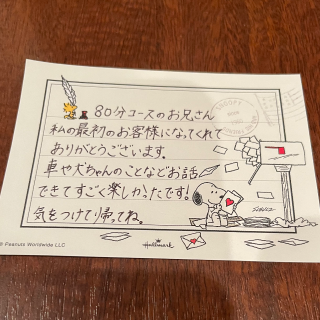 80分コースのお兄さん
私の最初のお客様になってくれて
ありがとうございます.
車や犬ちゃんのことなどお話
できてすごく楽しかったです!
気をつけて帰ってね。
© Peanuts Worldwide LLC
Hallmark
SNOOPY